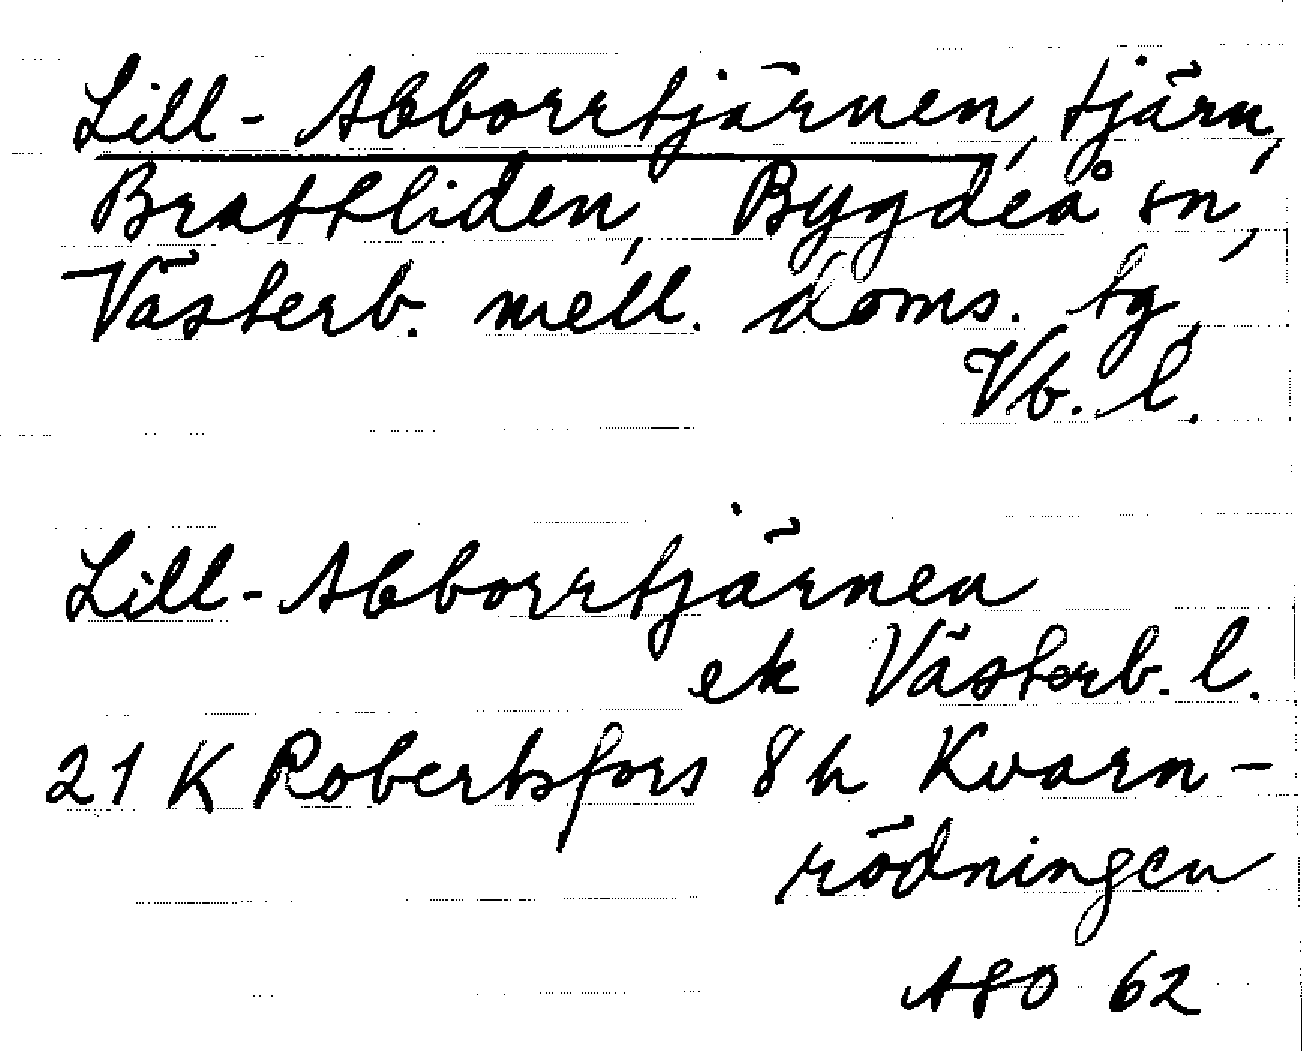 Lill-Abborrtjärnen, tjärn,
Brattliden, Bygdeå sn,
Västerb. mell. doms. tg,
Vb. l.
Lill-Abborrtjärnen
ek Västerb. l.
21 K Robertsfors 8 h Kvarn-
rödningen
ASO 62